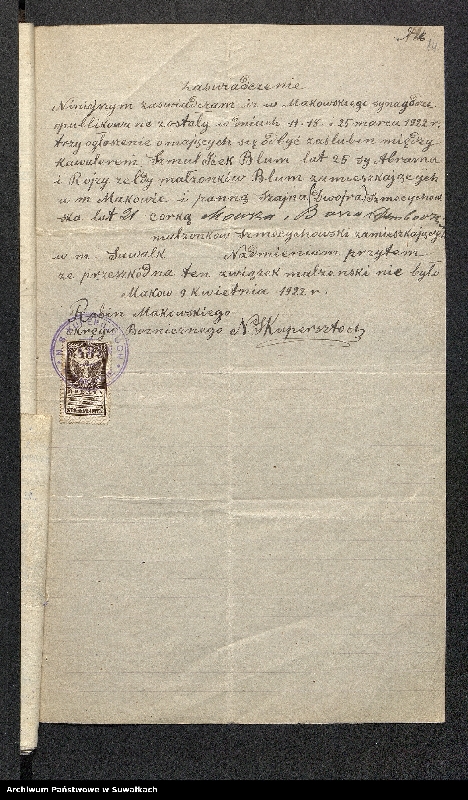 № 16
Zaświadczenie
Niniejszym zaświadczam iż w Makowskiego synagodze
opublikowane zostały w dniach 11. 18. i 25 marca 1922 r.
trzy ogłoszenie o mających się odbyć zaślubin między
kawalerem Szmul Blum lat 25 sy. Abrama
i Rojzy Zeldy małżonków Blum zamieszkających
w m Makowie i panną Szajna (Dwojra) Szmocychow
ska lat 21 córką Mowsza i
małżonków Szmocychowski zamieszkających
w m. Suwałk Nadmieniam przytem
że przeszkód na ten związek małżeński nie było
Maków 9 kwietnia 1922 r.
Rabin Makowskiego
okręgu Bożnicznego N. S. Kupersztoch
Archiwum Państwowe w Suwałkach